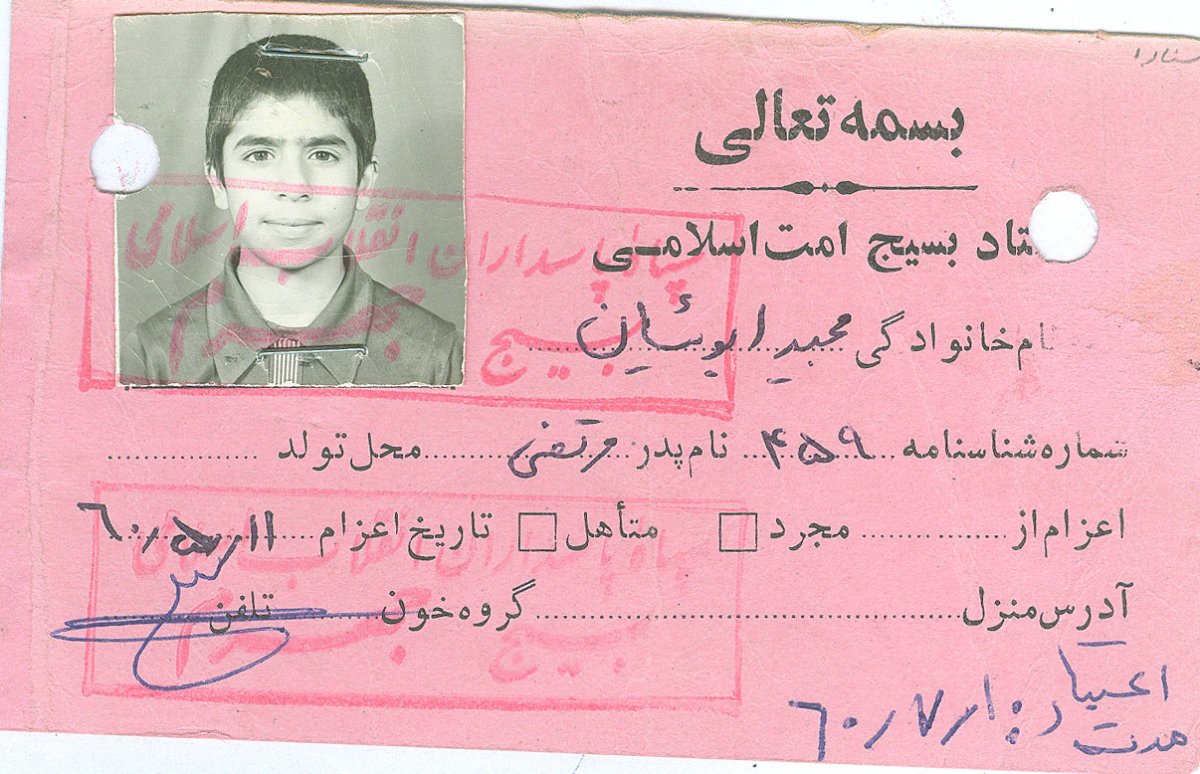 بسمه تعالی
تاد بسیج امت اسلامی
ام خانوادگی مجید ابوسئان
شماره شناسنامه ۴۵۹ نام پدر مرتضی محل تولد
اعزام از مجرد متأهل تاریخ اعزام ۶۰/۵/۱۱
آدرس منزل گروه خون تلفن
مدت اعتبار: ۶۰/۷/۱
سپاه پاسداران انقلاب اسلامی
بسیج جهرم
سپاه پاسداران انقلاب اسلامی
بسیج جهرم